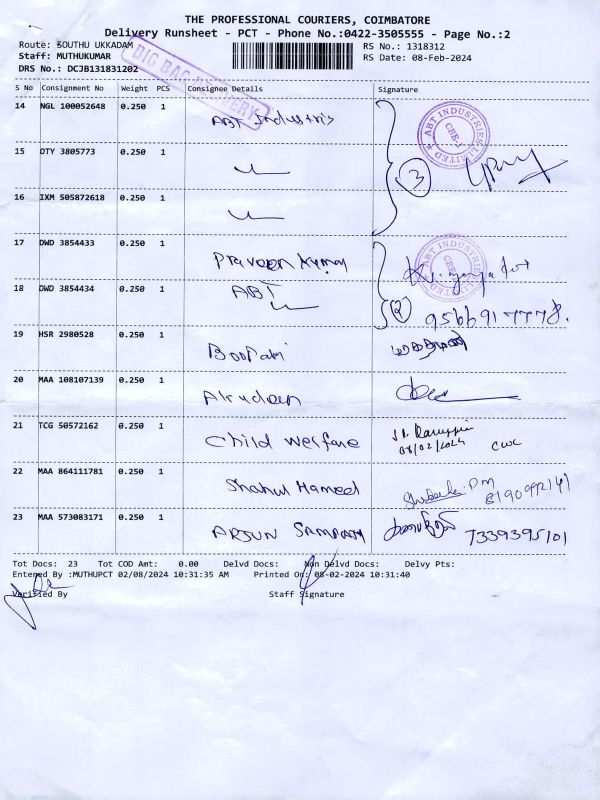 THE PROFESSIONAL COURIERS, COIMBATORE
Delivery Runsheet - PCT - Phone No.:0422-3505555 - Page No.:2
Route: SOUTHU UKKADAM
RS No.: 1318312
Staff: MUTHUKUMAR
RS Date: 08-Feb-2024
DRS No.: DCJB131831202
BIG BAG DELIVERY
S No Consignment No Weight PCS Consignee Details Signature
14 NGL 100052648 0.250 1 ABT Industris
ABT INDUSTRIES LIMITED
CBE-1
15 DTY 3805773 0.250 1
3
16 IXM 505872618 0.250 1
17 DWD 3854433 0.250 1 Praveen Kumar
ABT INDUSTRIES LIMITED
CBE-1
18 DWD 3854434 0.250 1 ABT
2 9566917778.
19 HSR 2980528 0.250 1 BooPathi
20 MAA 108107139 0.250 1
21 TCG 50572162 0.250 1 Child welfare
08/02/2024 CWC
22 MAA 864111781 0.250 1 Shahul Hameed
23 MAA 573083171 0.250 1 ARJUN SAMPATH 7339395101
Tot Docs: 23 Tot COD Amt: 0.00 Delvd Docs: Non Delvd Docs: Delvy Pts:
Entered By :MUTHUPCT 02/08/2024 10:31:35 AM Printed On: 08-02-2024 10:31:40
Verified By Staff Signature